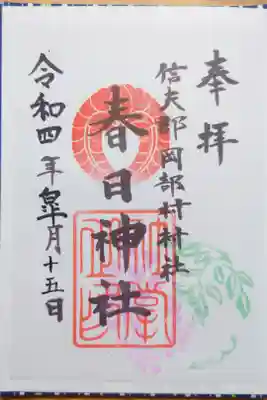 奉拝
信夫郡岡部村村社
春日神社
令和四年皐月十五日